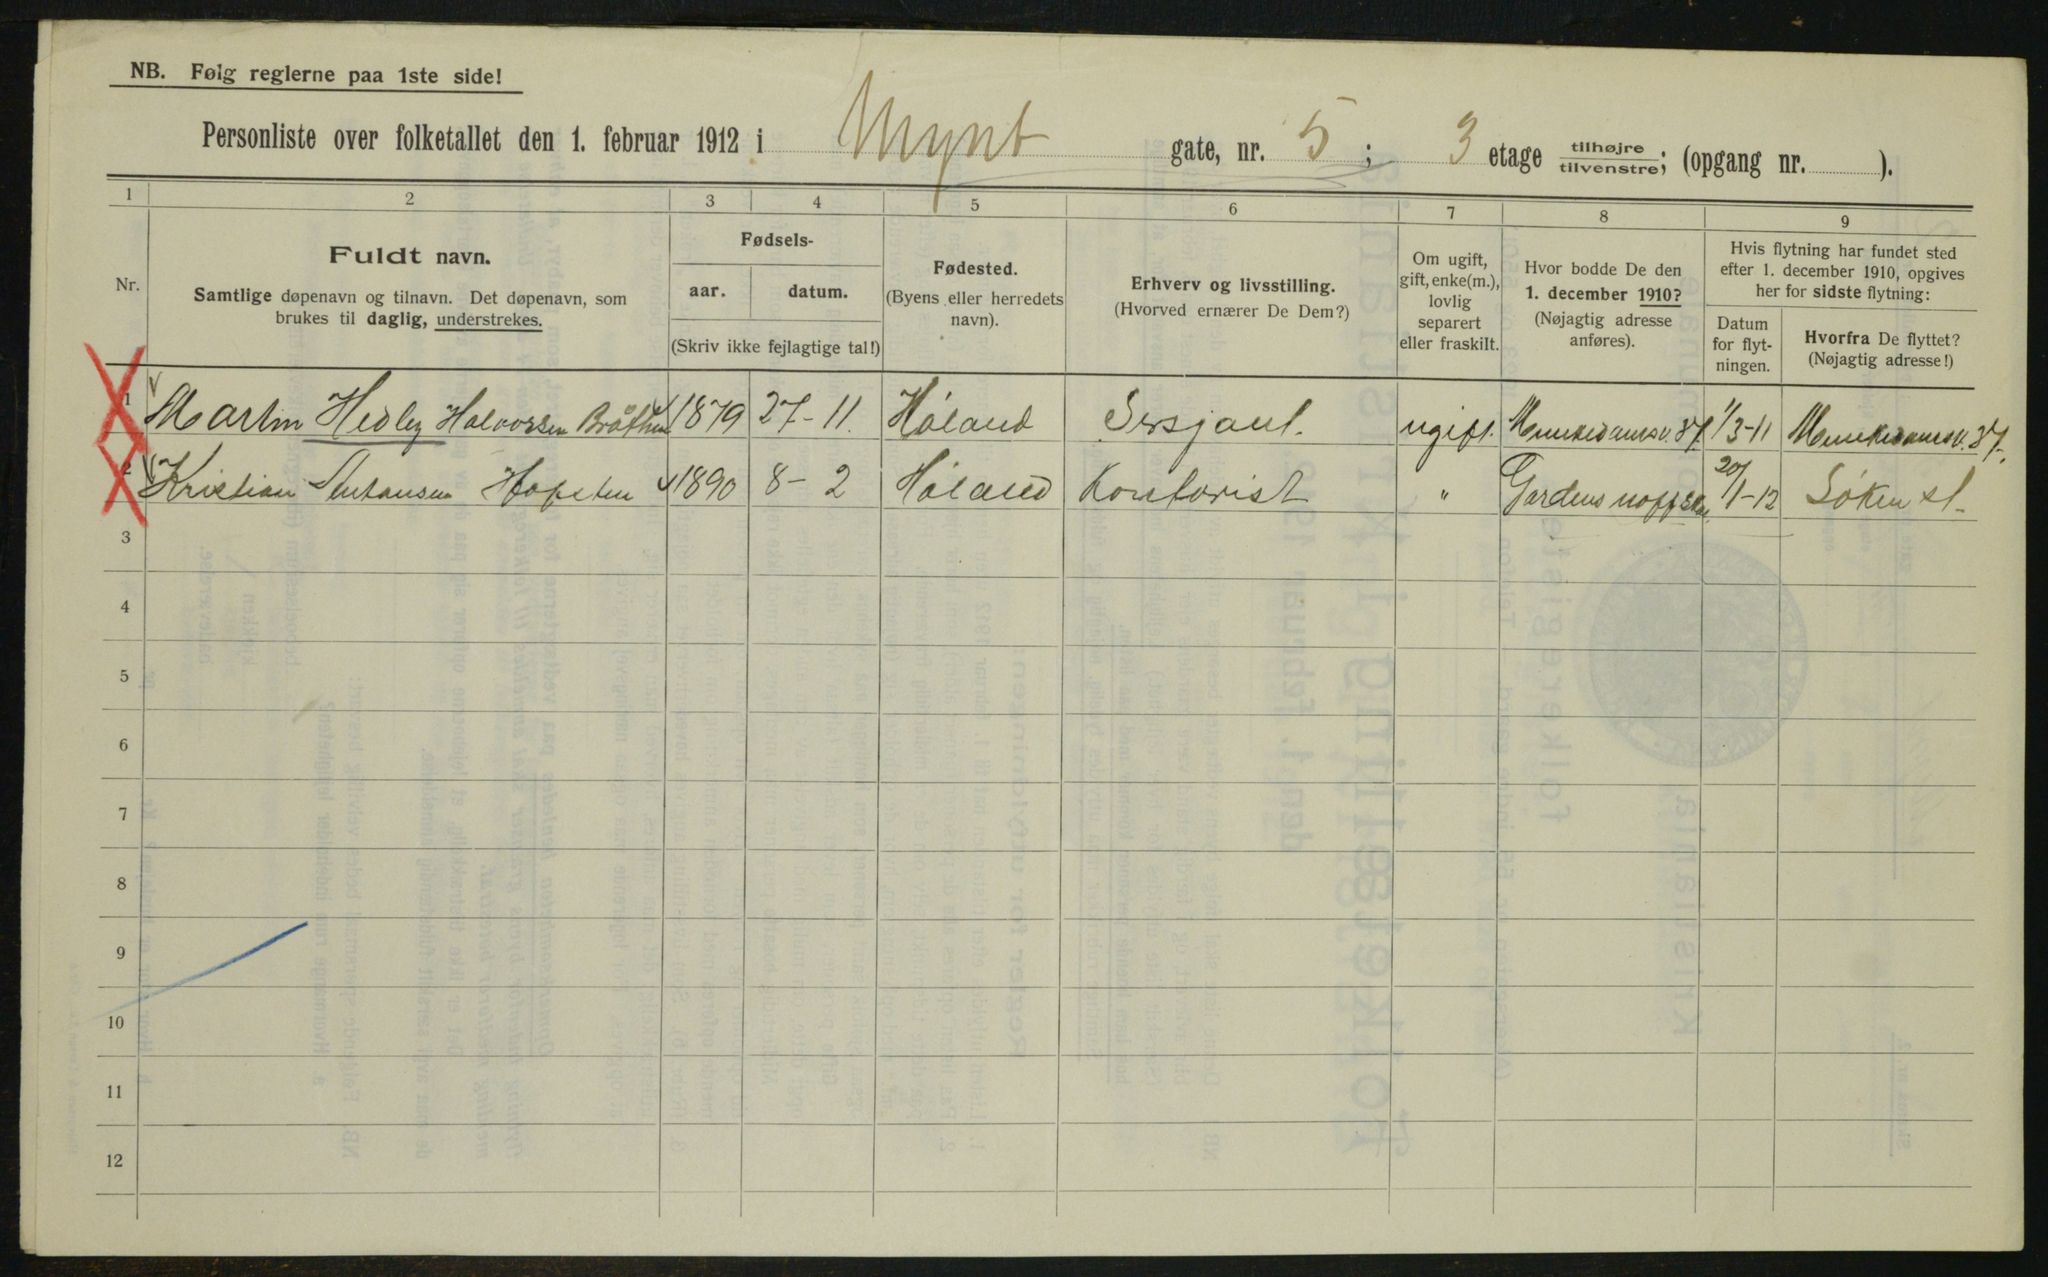 NB. Følg reglerne paa 1ste side!
Personliste over folketallet den 1. februar 1912 i Mynt gate, nr. 5; 3 etage tilhøjre/tilvenstre; (opgang nr. ).
1 2 3 4 5 6 7 8 9
Nr.
Fuldt navn.
Samtlige døpenavn og tilnavn. Det døpenavn, som
brukes til daglig, understrekes.
Fødsels-
aar. datum.
(Skriv ikke fejlagtige tal!)
Fødested.
(Byens eller herredets
navn).
Erhverv og livsstilling.
(Hvorved ernærer De Dem?)
Om ugift,
gift, enke(m.),
lovlig
separert
eller fraskilt.
Hvor bodde De den
1. december 1910?
(Nøjagtig adresse
anføres).
Hvis flytning har fundet sted
efter 1. december 1910, opgives
her for sidste flytning:
Datum
for flyt-
ningen.
Hvorfra De flyttet?
(Nøjagtig adresse!)
1 Martin Hedley Halvorsen Bråthen 1879 27-11. Høland Sersjant. ugift. Munkedamsv. 37. 1/3-11 Munkedamsv. 37.
2 Kristian Antonsen 1890 8-2 Høland Kontorist " 20/1-12
3
4
5
6
7
8
9
10
11
12